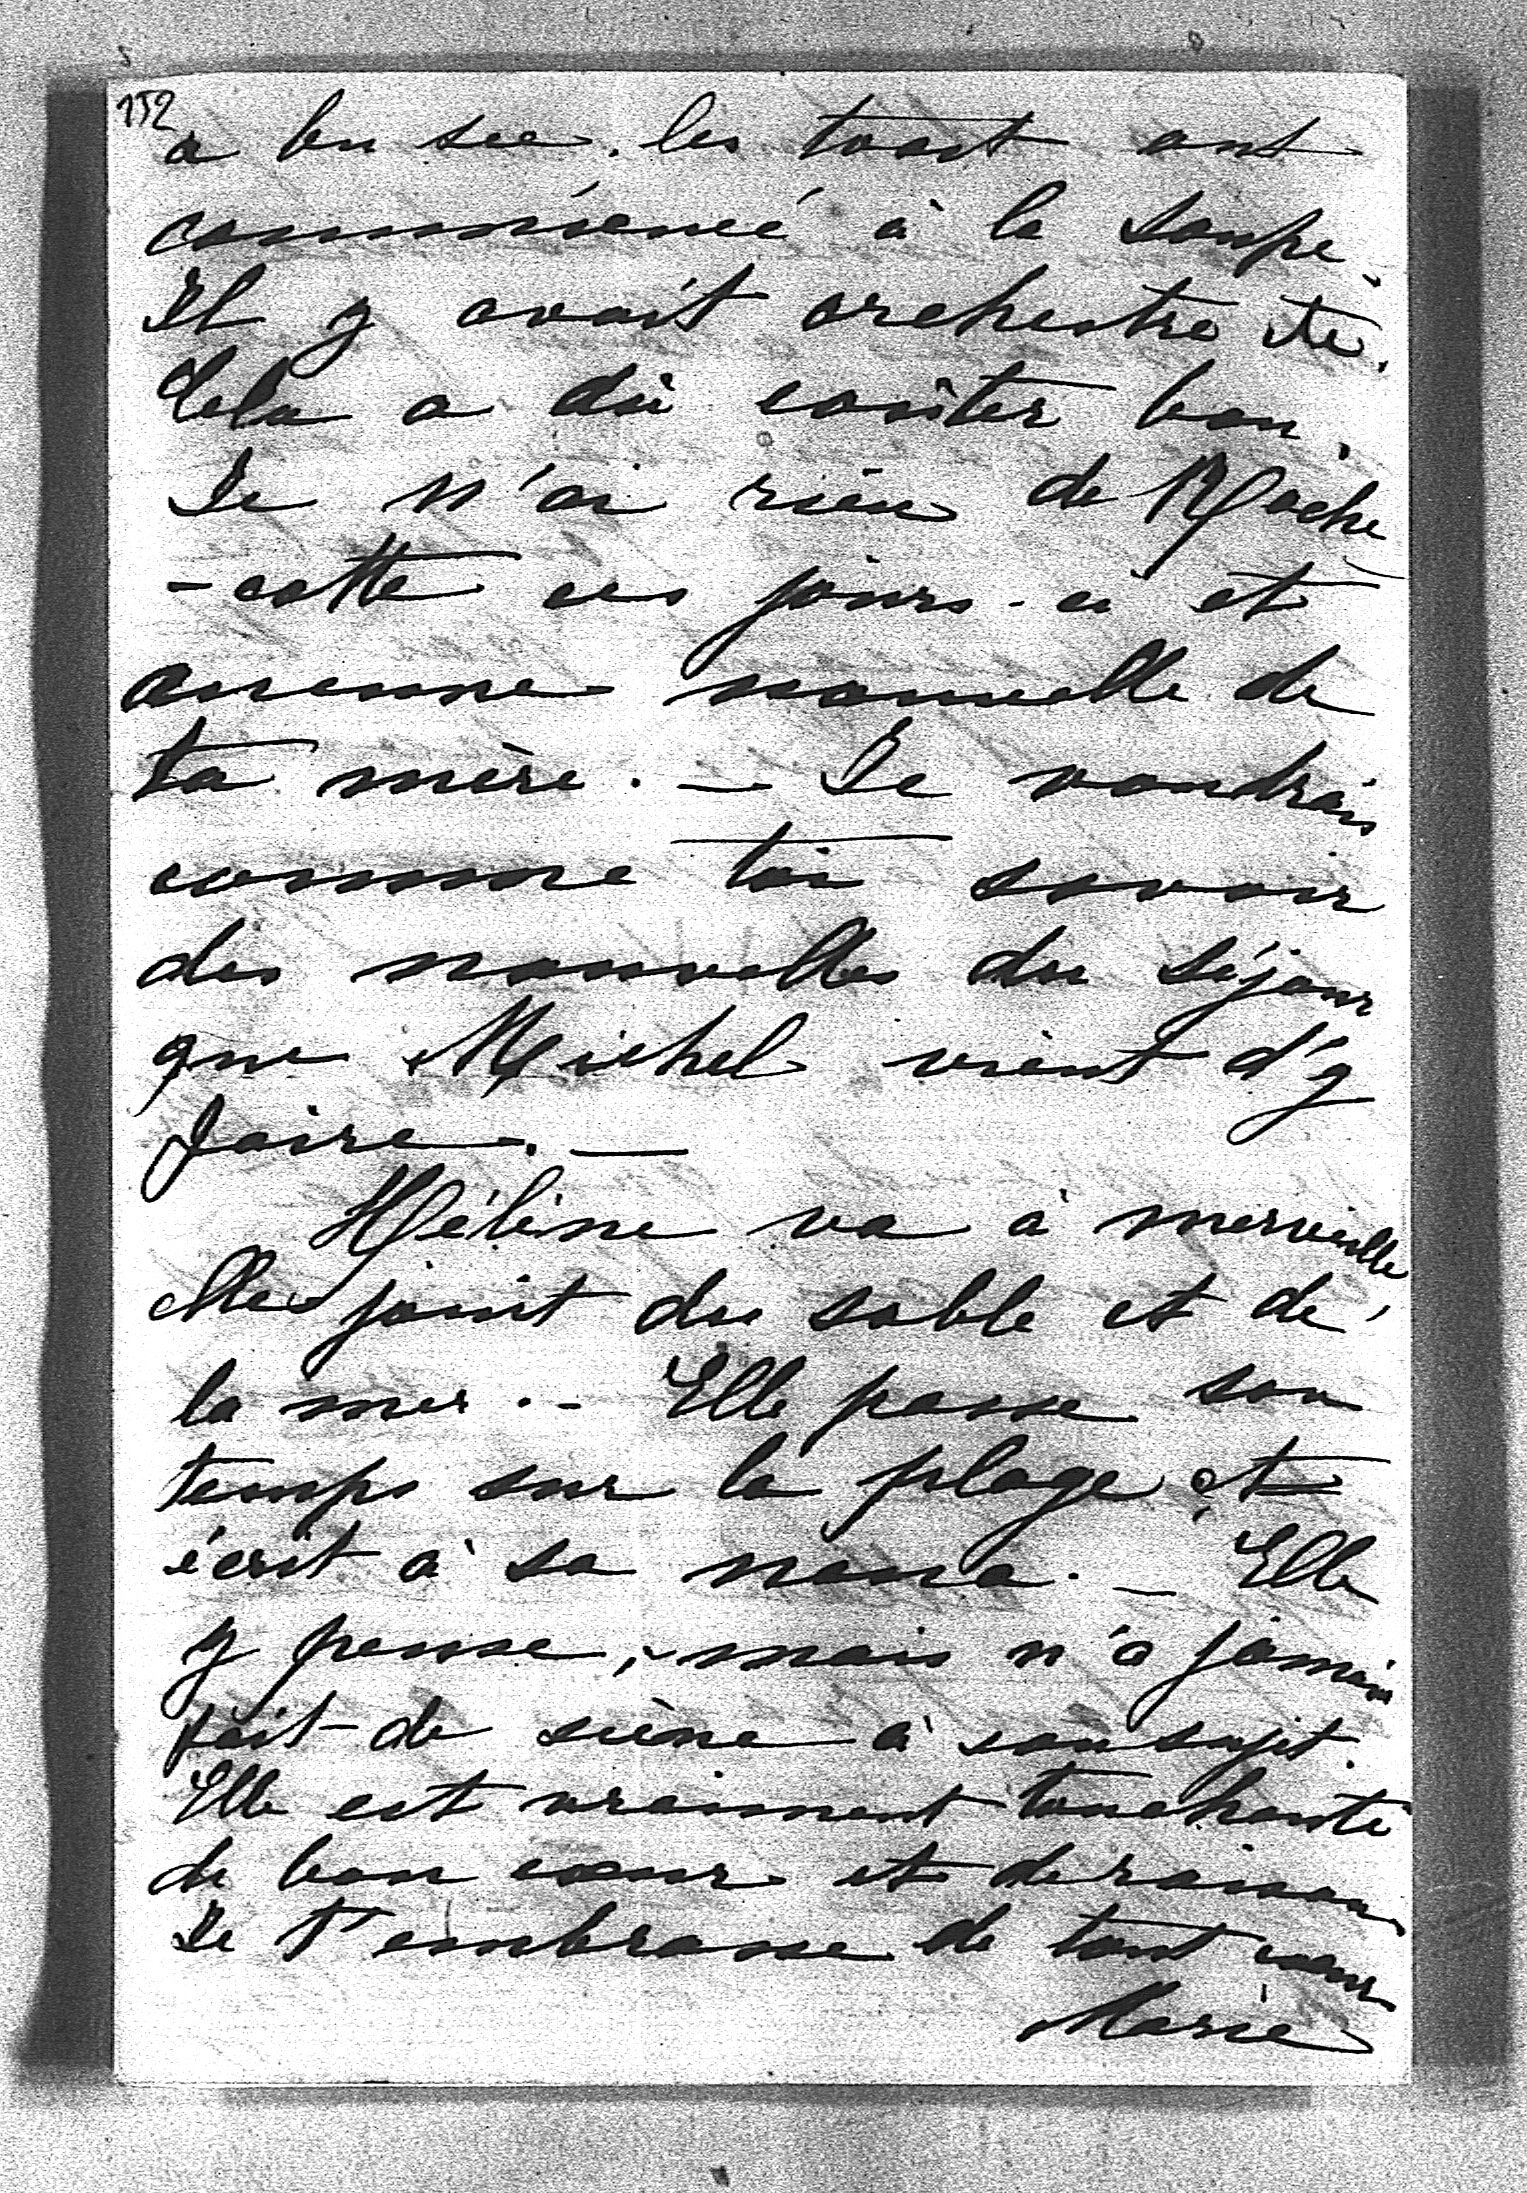 152
a bu sec. les toast ont
commencé à la soupe.
Il y avait orchestre etc.
Cela a dû coûter bon.
Je n'ai rien de Roche
-cotte ces jours-ci et
aucune nouvelle de
ta mère. — Je voudrais
comme toi savoir
des nouvelles du séjour
que Michel vient d'y
faire. —
Hélène va à merveille
elle jouit du sable et de
la mer. - Elle passe son
temps sur la plage et
écrit à sa nana. — Elle
y pense, mais n'a jamais
fait de scène à son sujet.
Elle est vraiment touchante
de bon cœur et de raison.
Je t'embrasse de tout cœur
Marie